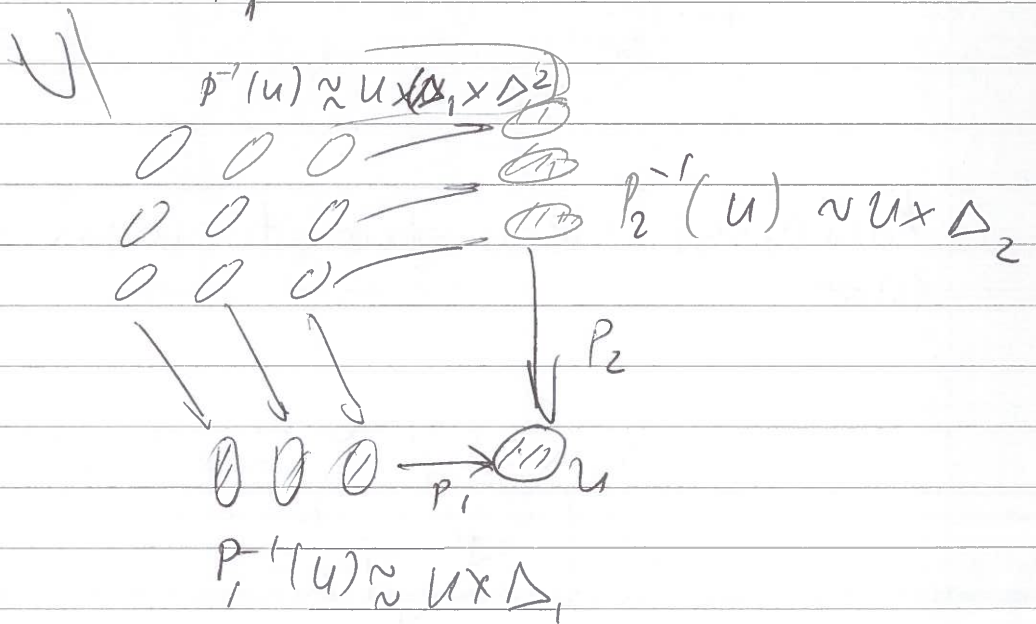 p⁻¹(U) ≈ U×(Δ₁×Δ²)
P₂⁻¹(U) ~ U×Δ₂
P₂
U
P₁
P₁⁻¹(U) ≈ U×Δ₁